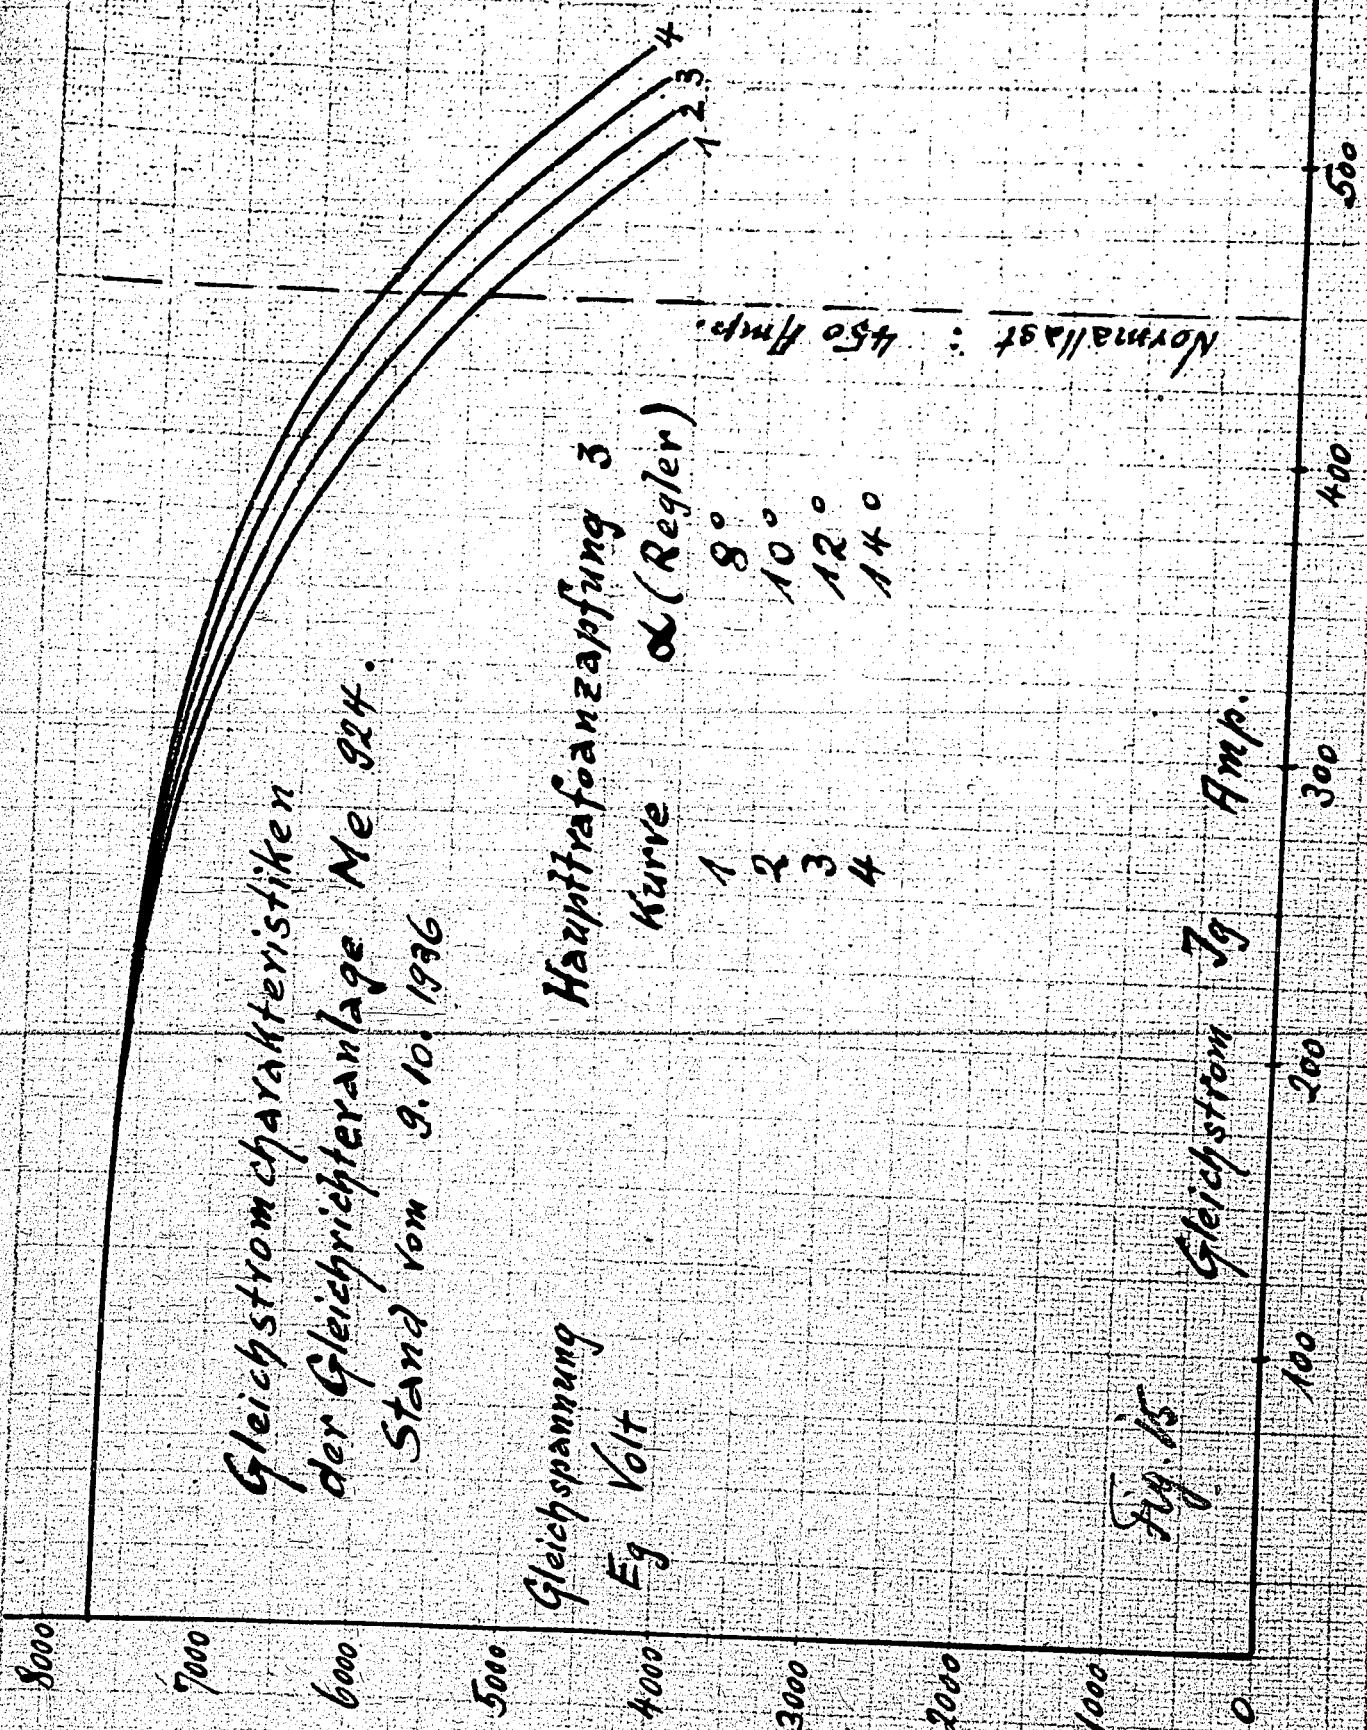 Gleichstromcharakteristiken
der Gleichrichteranlage Me 924.
Stand vom 9.10.1936
Gleichspannung
Eg Volt
Haupttrafoanzapfung 3
Kurve α (Regler)
1 8°
2 10°
3 12°
4 14°
Normallast : 450 Amp.
4
3
2
1
8000
7000
6000
5000
4000
3000
2000
1000
0
Fig. 15
Gleichstrom Jg Amp.
100
200
300
400
500